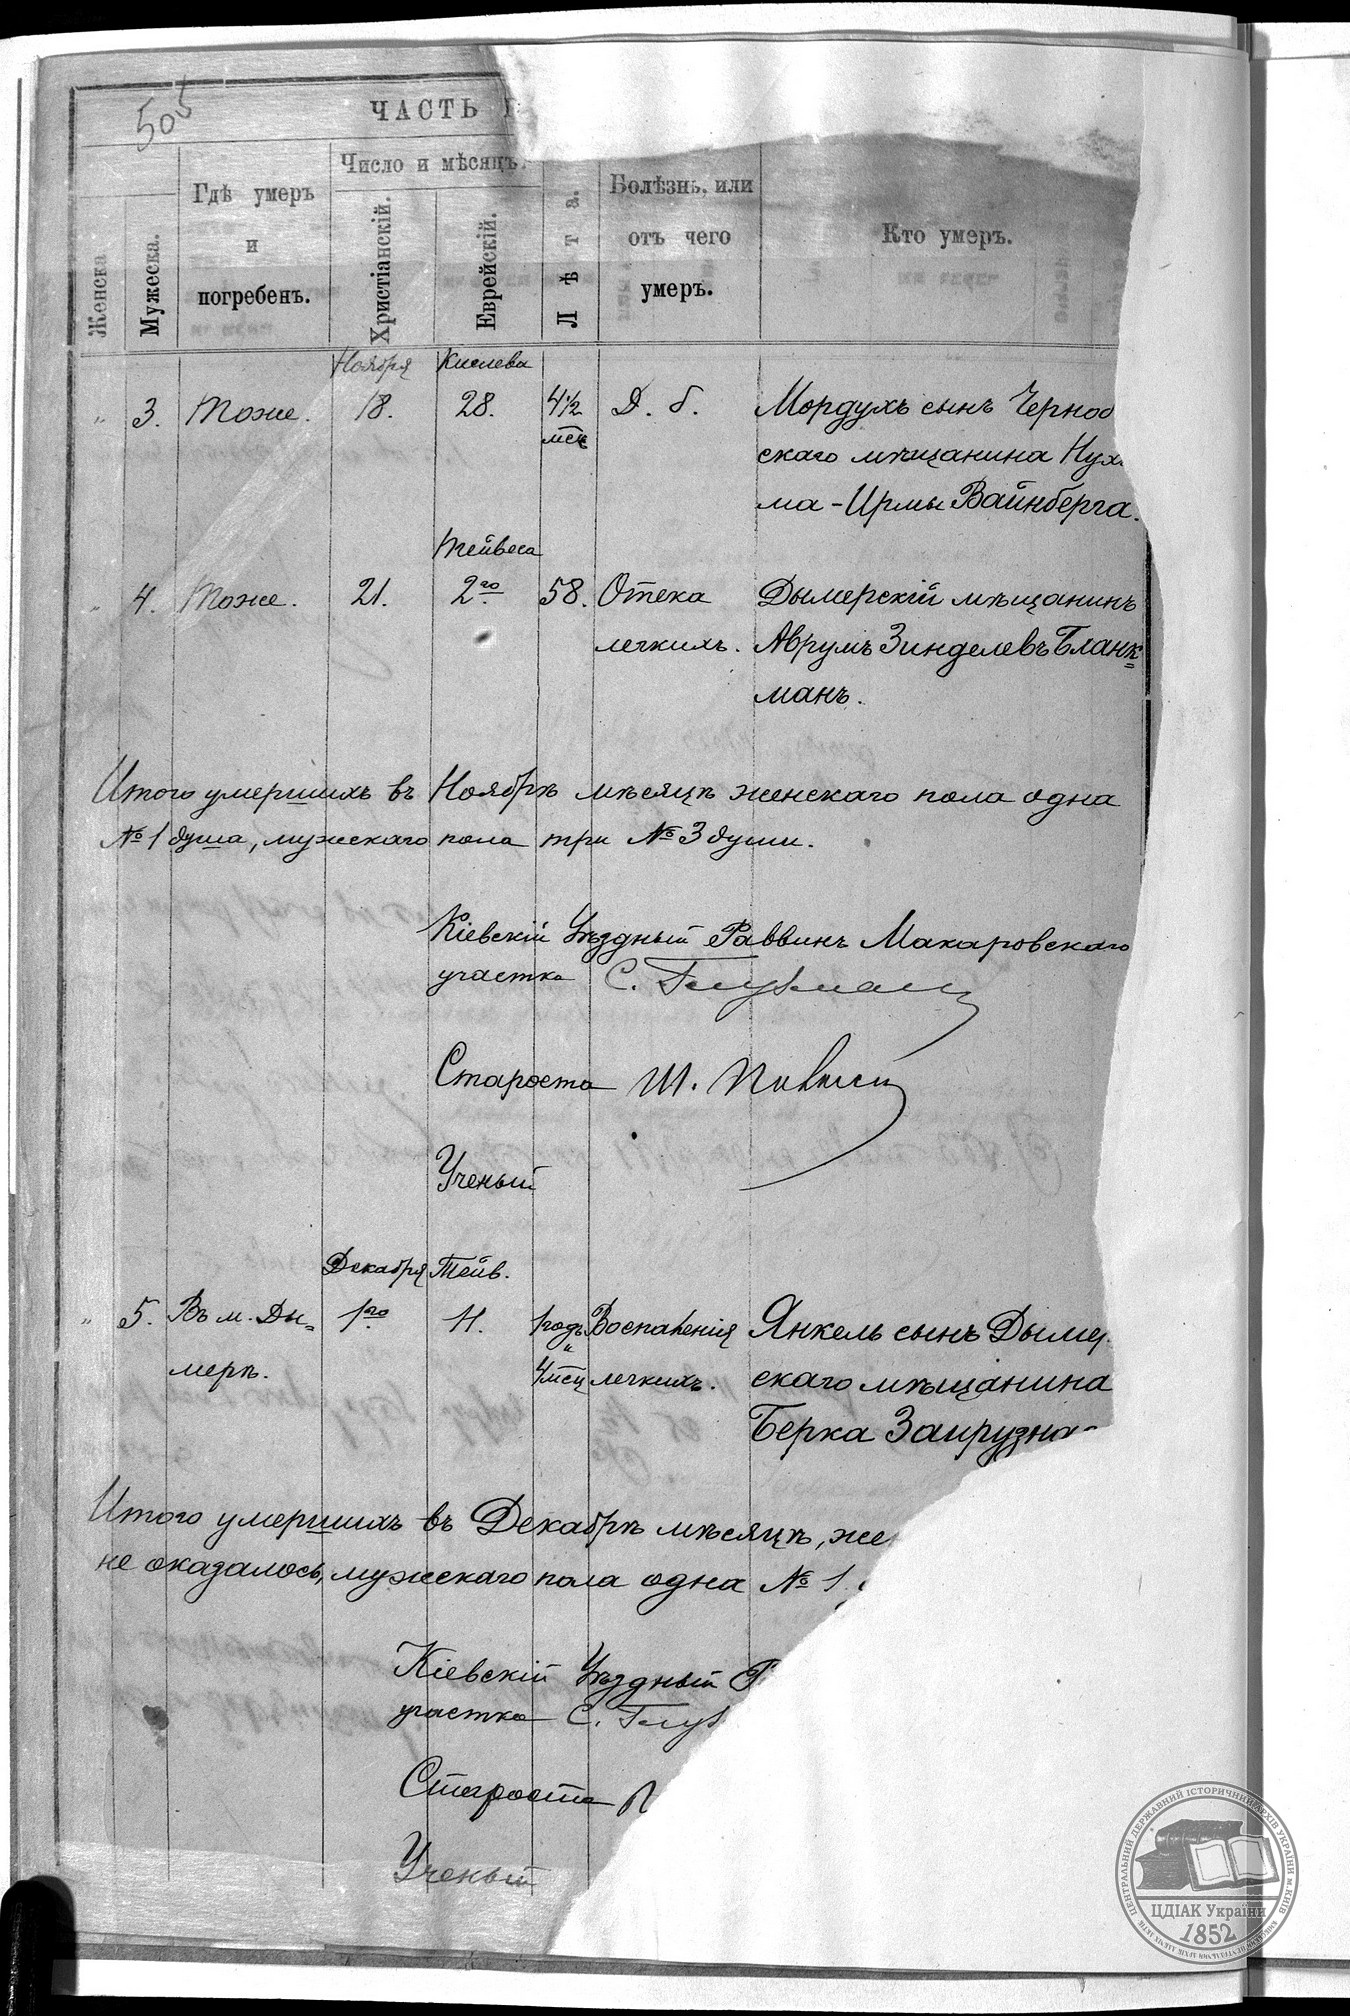 505
ЧАСТЬ
Женска
Мужеска.
Гдѣ умеръ
и
погребенъ.
Число и мѣсяцъ.
Христіанскій.
Еврейскій.
Лѣта.
Болѣзнь, или
отъ чего
умеръ.
Кто умеръ.
Ноября Кислева
" 3. Тоже. 18. 28. 4½ Д. б. Мордухъ сынъ Черноб
мсц скаго мѣщанина Нух
ма-Ирмы Вайнберга.
Тейвеса
" 4. Тоже. 21. 2го 58. Отека Дымерскій мѣщанинъ
легкихъ. Аврумъ Зинделевъ Бланк=
манъ.
Итого умершихъ въ Ноябрѣ мѣсяцѣ женскаго пола одна
№ 1 душа, мужскаго пола три № 3 души.
Кіевскій Уѣздный Раввинъ Макаровскаго
участка С. Глузманъ
Староста Ш.
Ученый
Декабря Тейв.
" 5. Въ м. Ды= 1го 11. 1годъ Воспаленія Янкель сынъ Дымер
мерѣ. 4мсц легкихъ. скаго мѣщанина
Берка Загрузна
Итого умершихъ въ Декабрѣ мѣсяцѣ, жен
не оказалось, мужскаго пола одна № 1
Кіевскій Уѣздный Р
участка С. Глуз
Староста
Ученый
ЦЕНТРАЛЬНИЙ ДЕРЖАВНИЙ ІСТОРИЧНИЙ АРХІВ УКРАЇНИ м. КИЇВ
ЦДІАК України
1852